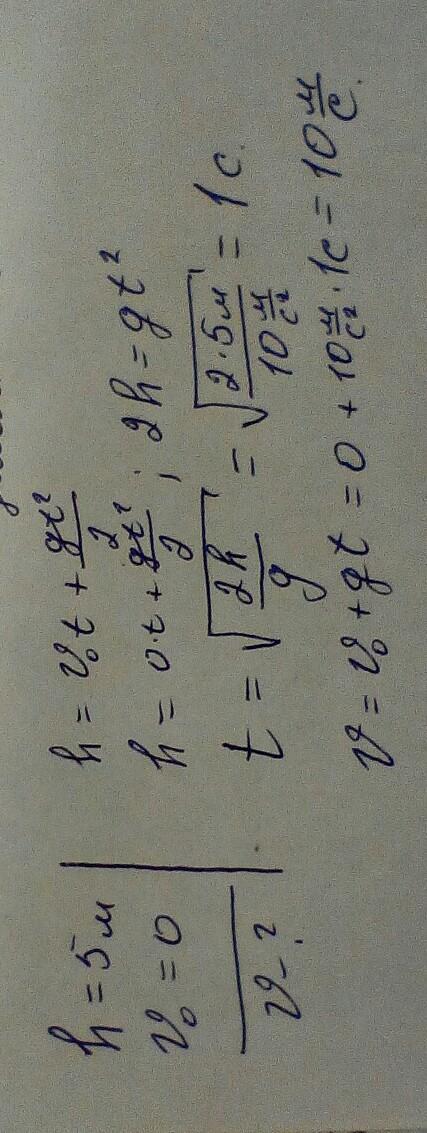 h = 5 м
v₀ = 0
v - ?
h = v₀t + gt²/2
h = 0·t + gt²/2 ; 2h = gt²
t = √(2h/g) = √(2·5м/10 м/с²) = 1 с.
v = v₀ + gt = 0 + 10 м/с² · 1с = 10 м/с.